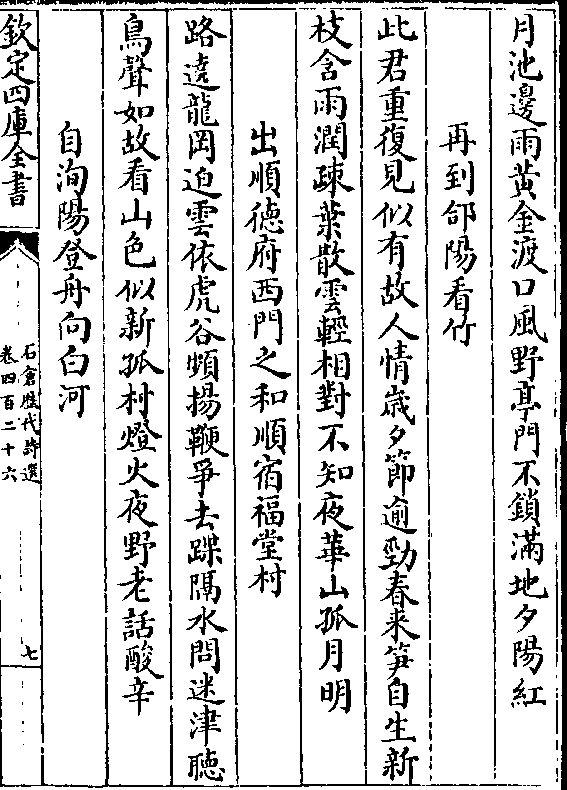 月池邊雨黃金渡口風野亭門不鎖滿地夕陽紅
再到郃陽看竹
此君重復見似有故人情歲夕節逾勁春来笋自生新
枝含雨潤疎葉散雲輕相對不知夜華山孤月明
出順徳府西門之和順宿福堂村
路遶龍岡迫雲依虎谷頻揚鞭爭去蹀隔水問迷津聴
鳥聲如故看山色似新孤村燈火夜野老話酸辛
自洵陽登舟向白河
欽定四庫全書
石倉歴代詩選
卷四百二十六
七